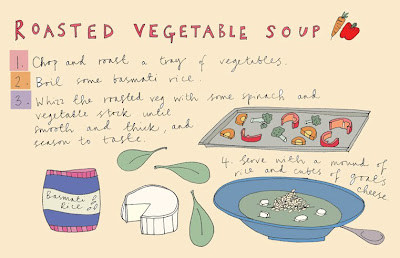 ROASTED VEGETABLE SOUP
1. Chop and roast a tray of vegetables.
2. Boil some basmati rice.
3. Whizz the roasted veg with some spinach and
vegetable stock until
smooth and thick, and
season to taste.
4. Serve with a mound of
rice and cubes of goat's
cheese
Basmati
Rice